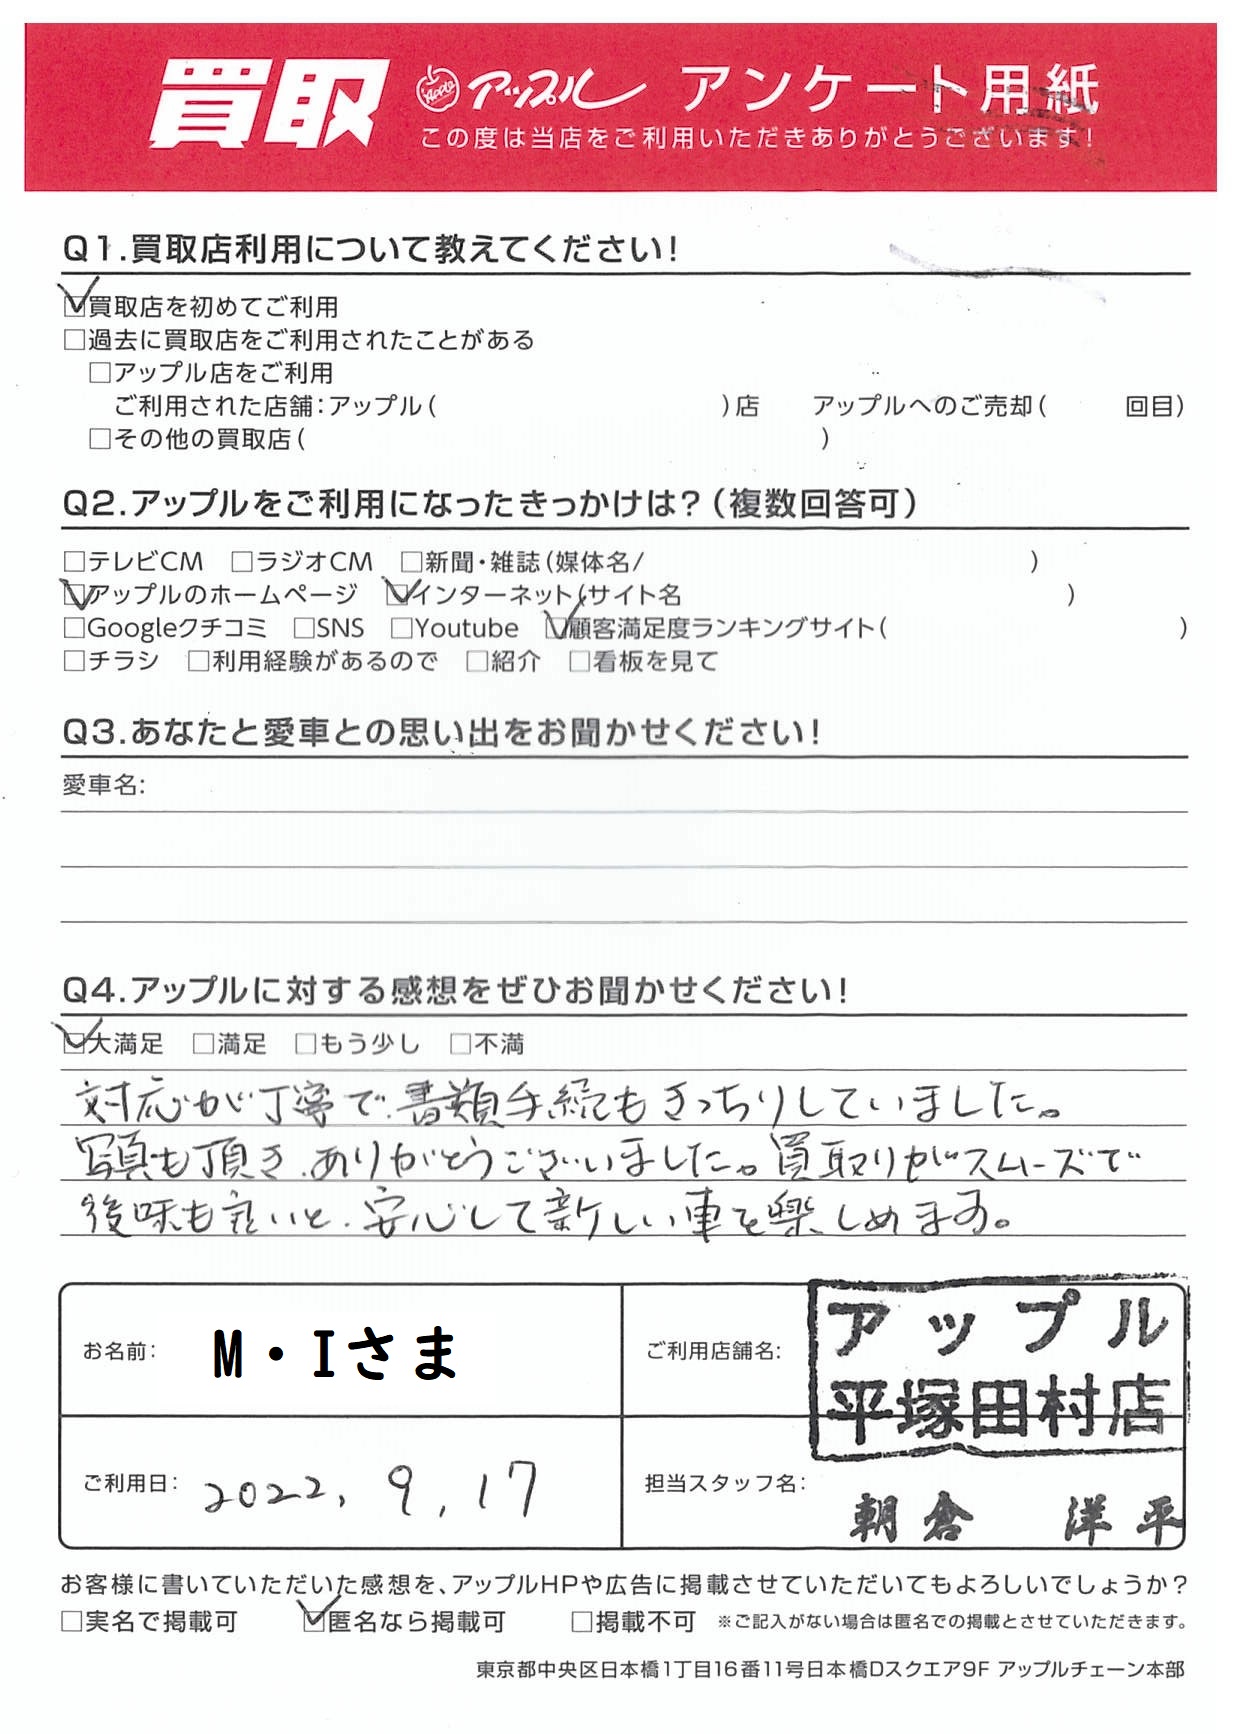 買取 Apple アップル アンケート用紙
この度は当店をご利用いただきありがとうございます!
Q1.買取店利用について教えてください!
☑買取店を初めてご利用
□過去に買取店をご利用されたことがある
□アップル店をご利用
ご利用された店舗:アップル( )店 アップルへのご売却( 回目)
□その他の買取店( )
Q2.アップルをご利用になったきっかけは?(複数回答可)
□テレビCM □ラジオCM □新聞・雑誌(媒体名/ )
☑アップルのホームページ ☑インターネット(サイト名 )
□Googleクチコミ □SNS □Youtube ☑顧客満足度ランキングサイト( )
□チラシ □利用経験があるので □紹介 □看板を見て
Q3.あなたと愛車との思い出をお聞かせください!
愛車名:
Q4.アップルに対する感想をぜひお聞かせください!
☑大満足 □満足 □もう少し □不満
対応が丁寧で、書類手続もきっちりしていました。
写真も頂き、ありがとうございました。買取りがスムーズで
後味も良いと、安心して新しい車を楽しめます。
お名前: M・Iさま
ご利用店舗名: アップル
平塚田村店
ご利用日: 2022, 9, 17
担当スタッフ名: 朝倉 洋平
お客様に書いていただいた感想を、アップルHPや広告に掲載させていただいてもよろしいでしょうか?
□実名で掲載可 ☑匿名なら掲載可 □掲載不可 ※ご記入がない場合は匿名での掲載とさせていただきます。
東京都中央区日本橋1丁目16番11号日本橋Dスクエア9F アップルチェーン本部